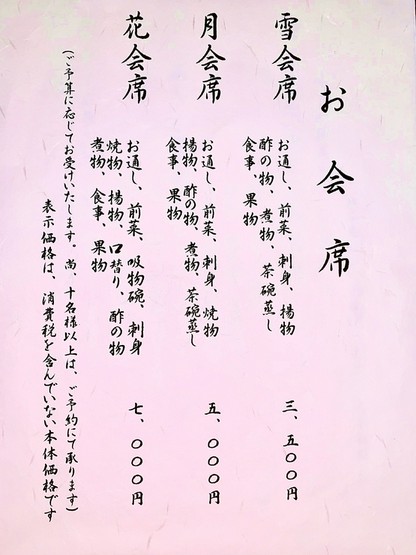 お会席
雪会席
お通し、前菜、刺身、揚物
酢の物、煮物、茶碗蒸し
食事、果物
三、五〇〇円
月会席
お通し、前菜、刺身、焼物
揚物、酢の物、煮物、茶碗蒸し
食事、果物
五、〇〇〇円
花会席
お通し、前菜、吸物碗、刺身
焼物、揚物、口替り、酢の物
煮物、食事、果物
七、〇〇〇円
(ご予算に応じてお受けいたします。尚、十名様以上は、ご予約にて承ります)
表示価格は、消費税を含んでいない本体価格です